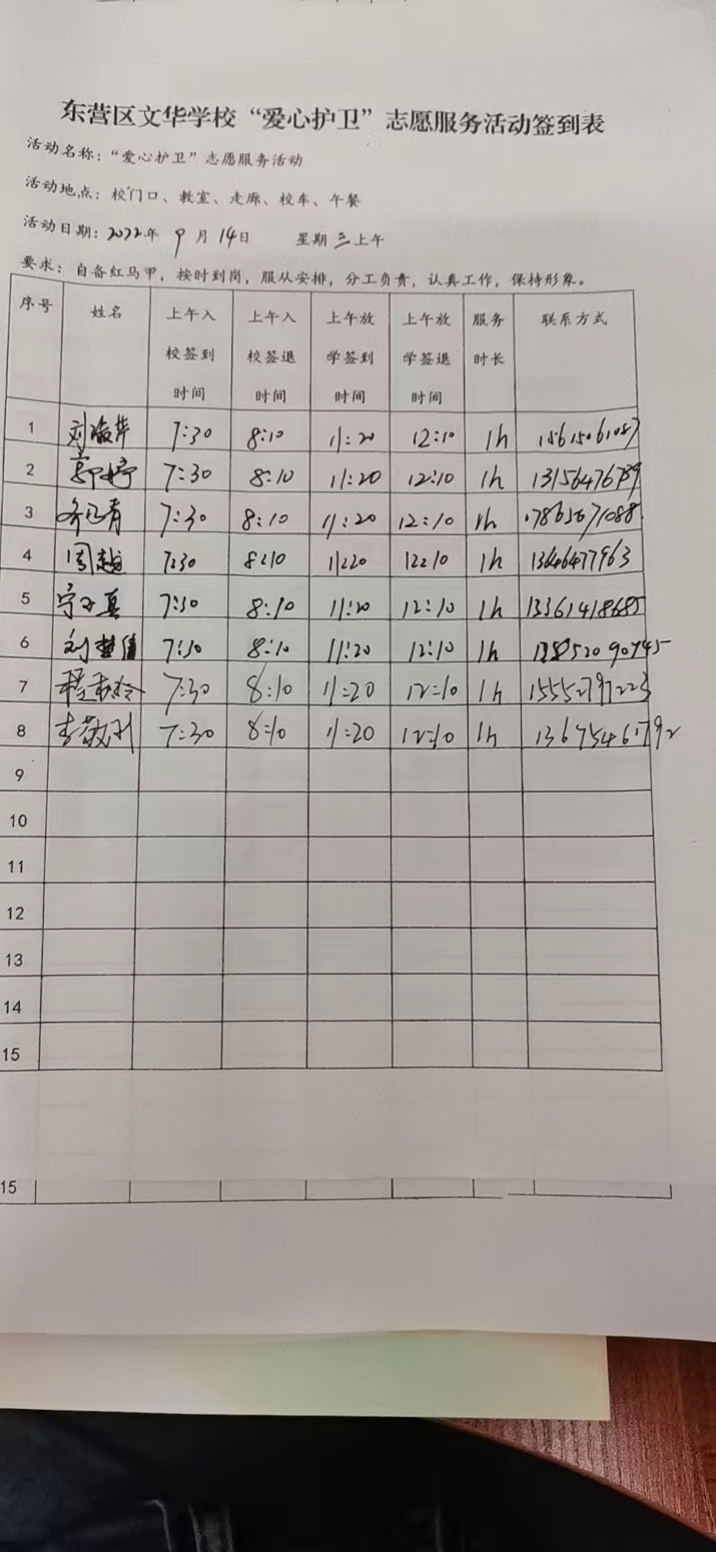 东营区文华学校“爱心护卫”志愿服务活动签到表
活动名称：“爱心护卫”志愿服务活动
活动地点：校门口、教室、走廊、校车、午餐
活动日期：2022年 9月 14日 星期三上午
要求：自备红马甲，按时到岗，服从安排，分工负责，认真工作，保持形象。
序号 姓名 上午入校签到时间 上午入校签退时间 上午放学签到时间 上午放学签退时间 服务时长 联系方式
1 7:30 8:10 11:20 12:10 1h 15615061087
2 7:30 8:10 11:20 12:10 1h 13156476789
3 7:30 8:10 11:20 12:10 1h 17865671088
4 周越 7:30 8:10 11:20 12:10 1h 13646477963
5 7:30 8:10 11:20 12:10 1h 13361418685
6 7:30 8:10 11:20 12:10 1h
7 7:30 8:10 11:20 12:10 1h 15552797223
8 7:30 8:10 11:20 12:10 1h 13675461792
9
10
11
12
13
14
15
15